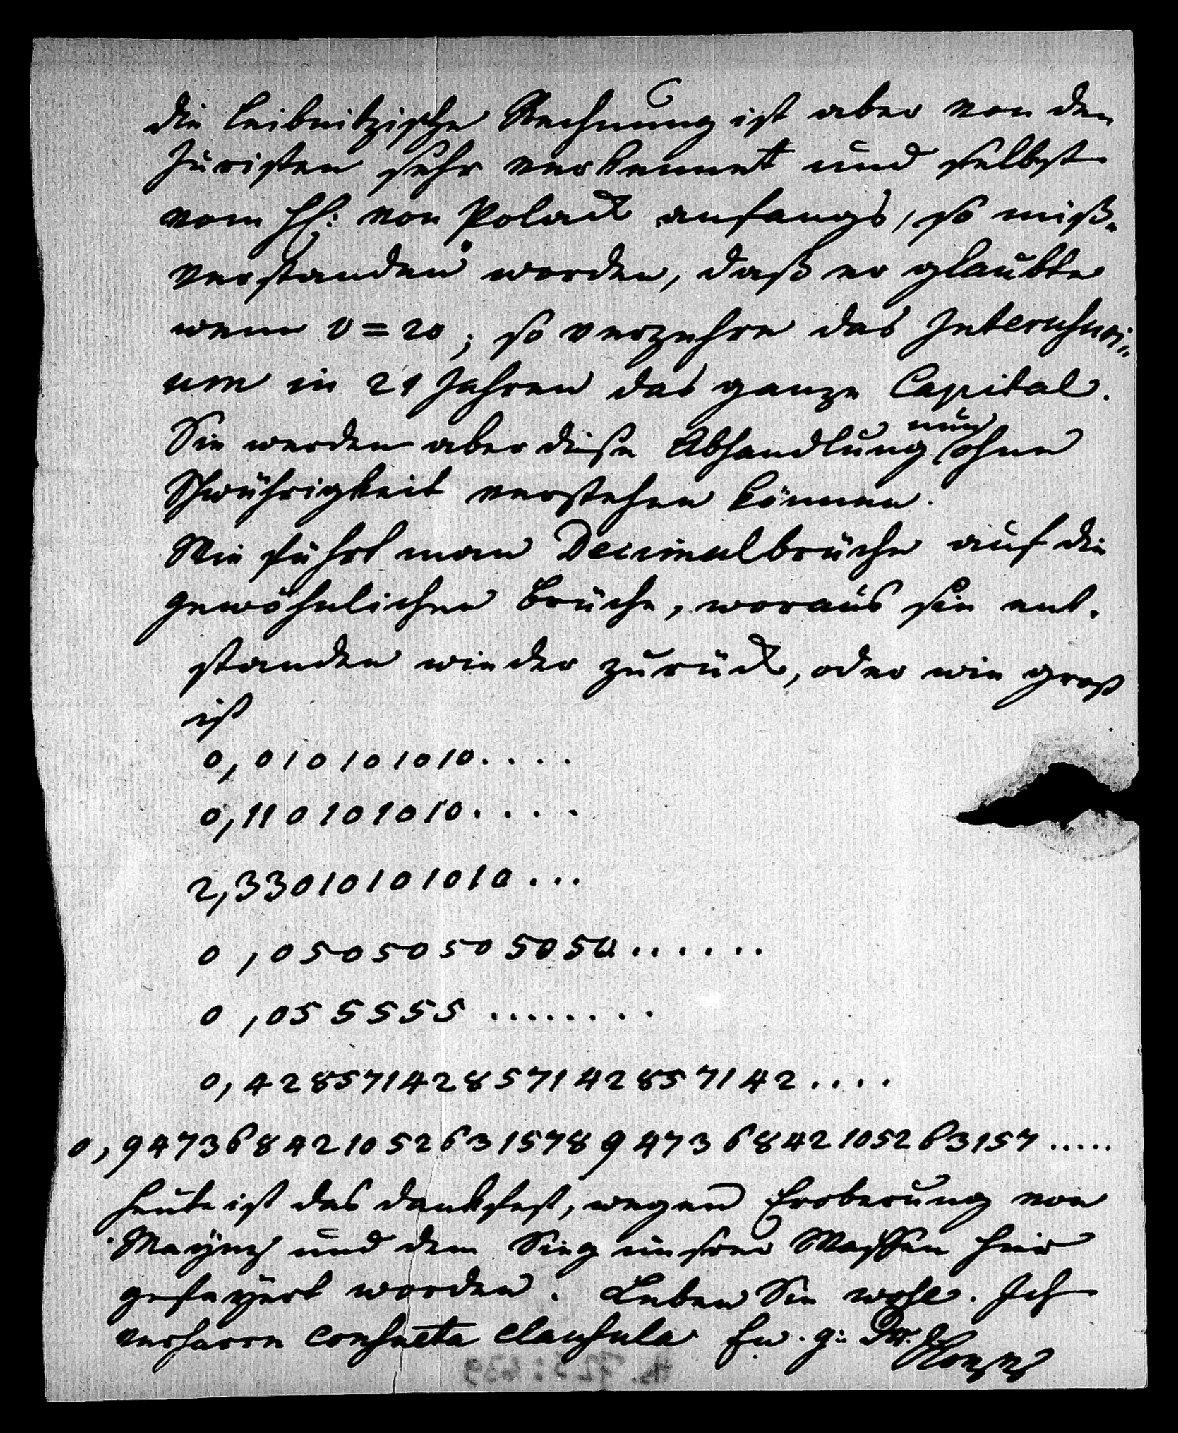 die Leibnitzische Rechnung ist aber von den
Juristen sehr verkennet und selbst
vom H: von Polack anfangs, so miß-
verstanden worden, daß er glaubte
wenn v = 20; so verzehre das Interusuri-
um in 21 Jahren das ganze Capital.
Sie werden aber diese Abhandlung nun ohne
Schwührigkeit verstehen können.
Wie führt man Decimalbrüche auf die
gewöhnlichen Brüche, woraus sie ent-
standen wieder zurück, oder wie groß
ist
0,010101010....
0,110101010....
2,33010101010...
0,05050505050......
0,055555........
0,4285714285714285 7142....
0,94736842105263157894736842105263157.....
Heute ist das Dankfest, wegen Eroberung von
Maynz und dem Sieg unsrer Waffen hier
gefeyert worden. Leben Sie wohl. Ich
verharre consueta clausula Ew. g: Dr.
Hs. 725:639